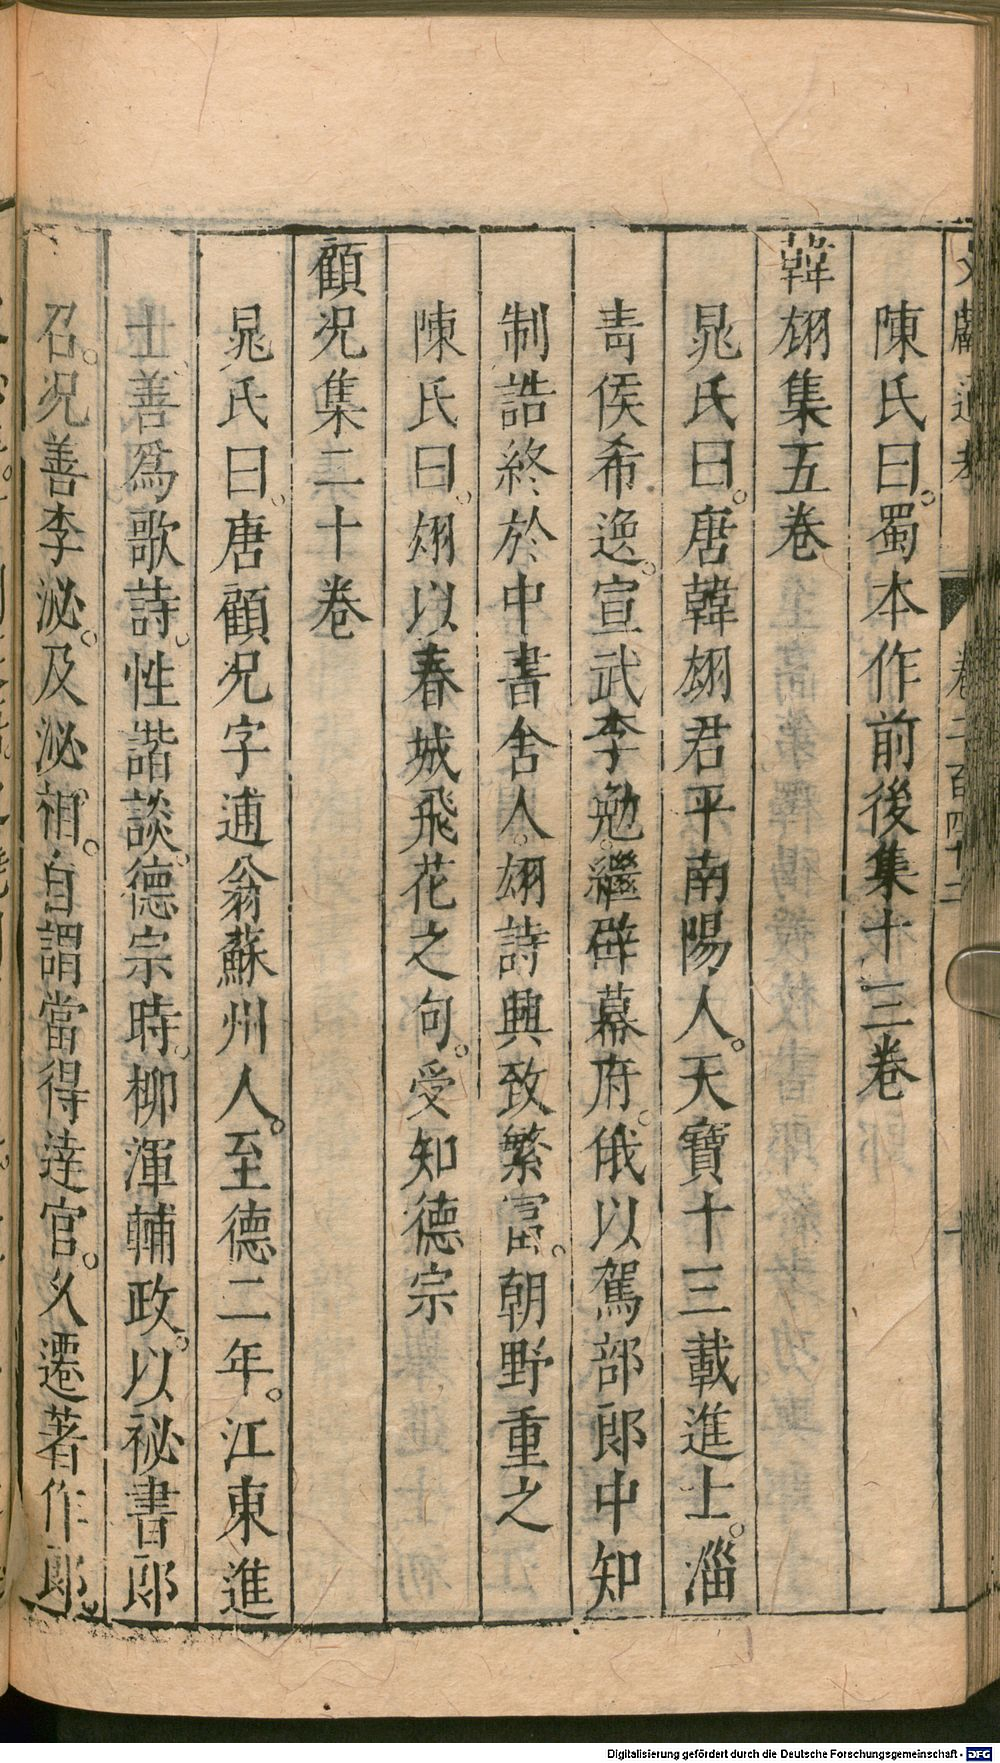 文獻通考 卷二百四十二 十
陳氏曰。蜀本作前後集十三卷
韓翃集五卷
晁氏曰。唐韓翃君平南陽人。天寶十三載進士。淄
青侯希逸。宣武李勉。繼辟幕府。俄以駕部郎中知
制誥終於中書舍人。翃詩興致繁富。朝野重之
陳氏曰。翃以春城飛花之句。受知德宗
顧况集二十卷
晁氏曰。唐顧况字逋翁蘇州人。至德二年。江東進
士。善爲歌詩。性諧談。德宗時。柳渾輔政。以祕書郎
召。况善李泌。及泌相。自謂當得達官。久遷著作郎。
Digitalisierung gefördert durch die Deutsche Forschungsgemeinschaft - DFG